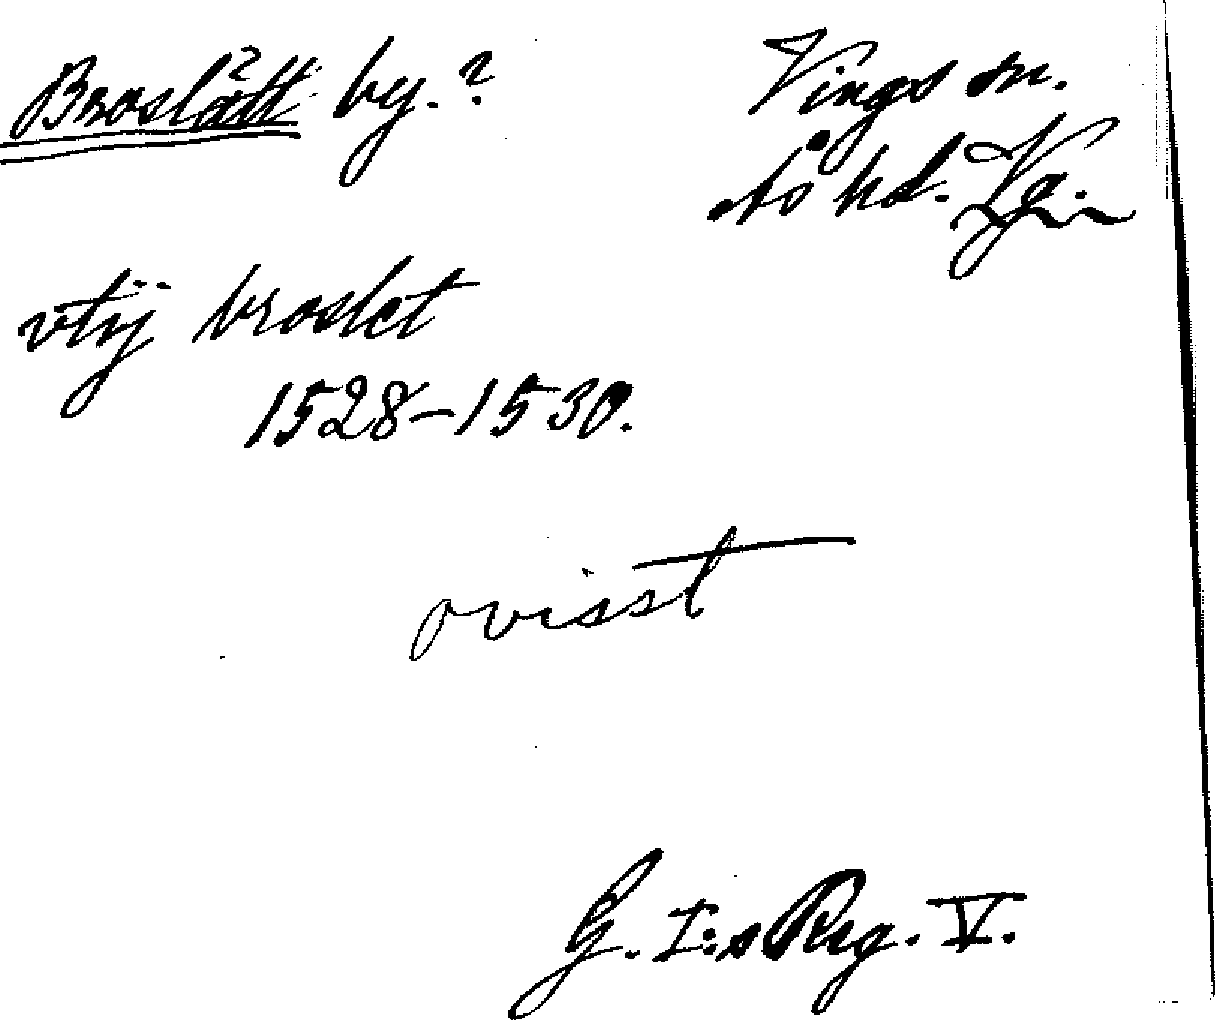 Broslätt by.?
Vings sn.
Ås hd. Vg.
vtij broslet
1528-1530.
ovisst
G. I:s Reg. V.